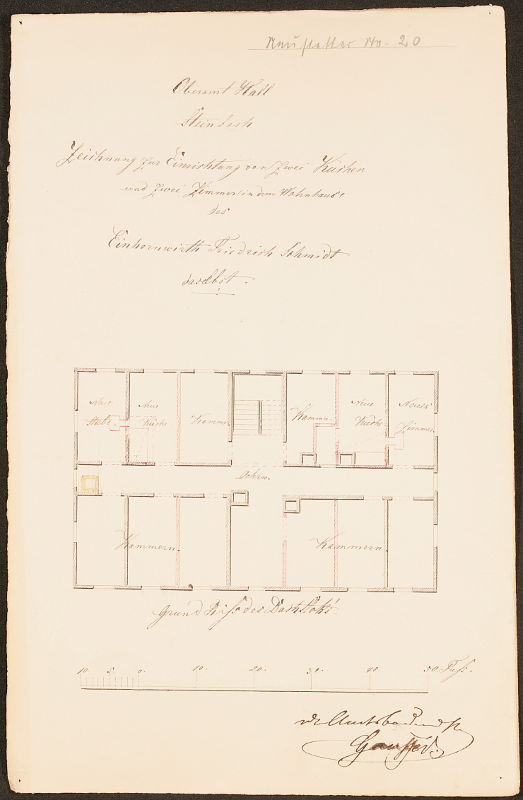 No. 20
Oberamt Hall
Steinbach
Zeichnung zur Einrichtung von zwei Küchen
und zwei Zimmer in dem Wohnhaus
des
Einhornwirth Friedrich Schmidt
daselbst.
Neue Küche
Kammer
Kammer
Neue Küche
Neues Zimmer
Oehrn.
Kammern.
Kammern.
Grund Riss des Dachstoks
10. 5. 0. 10. 20. 30. 40. 50. Fuss.